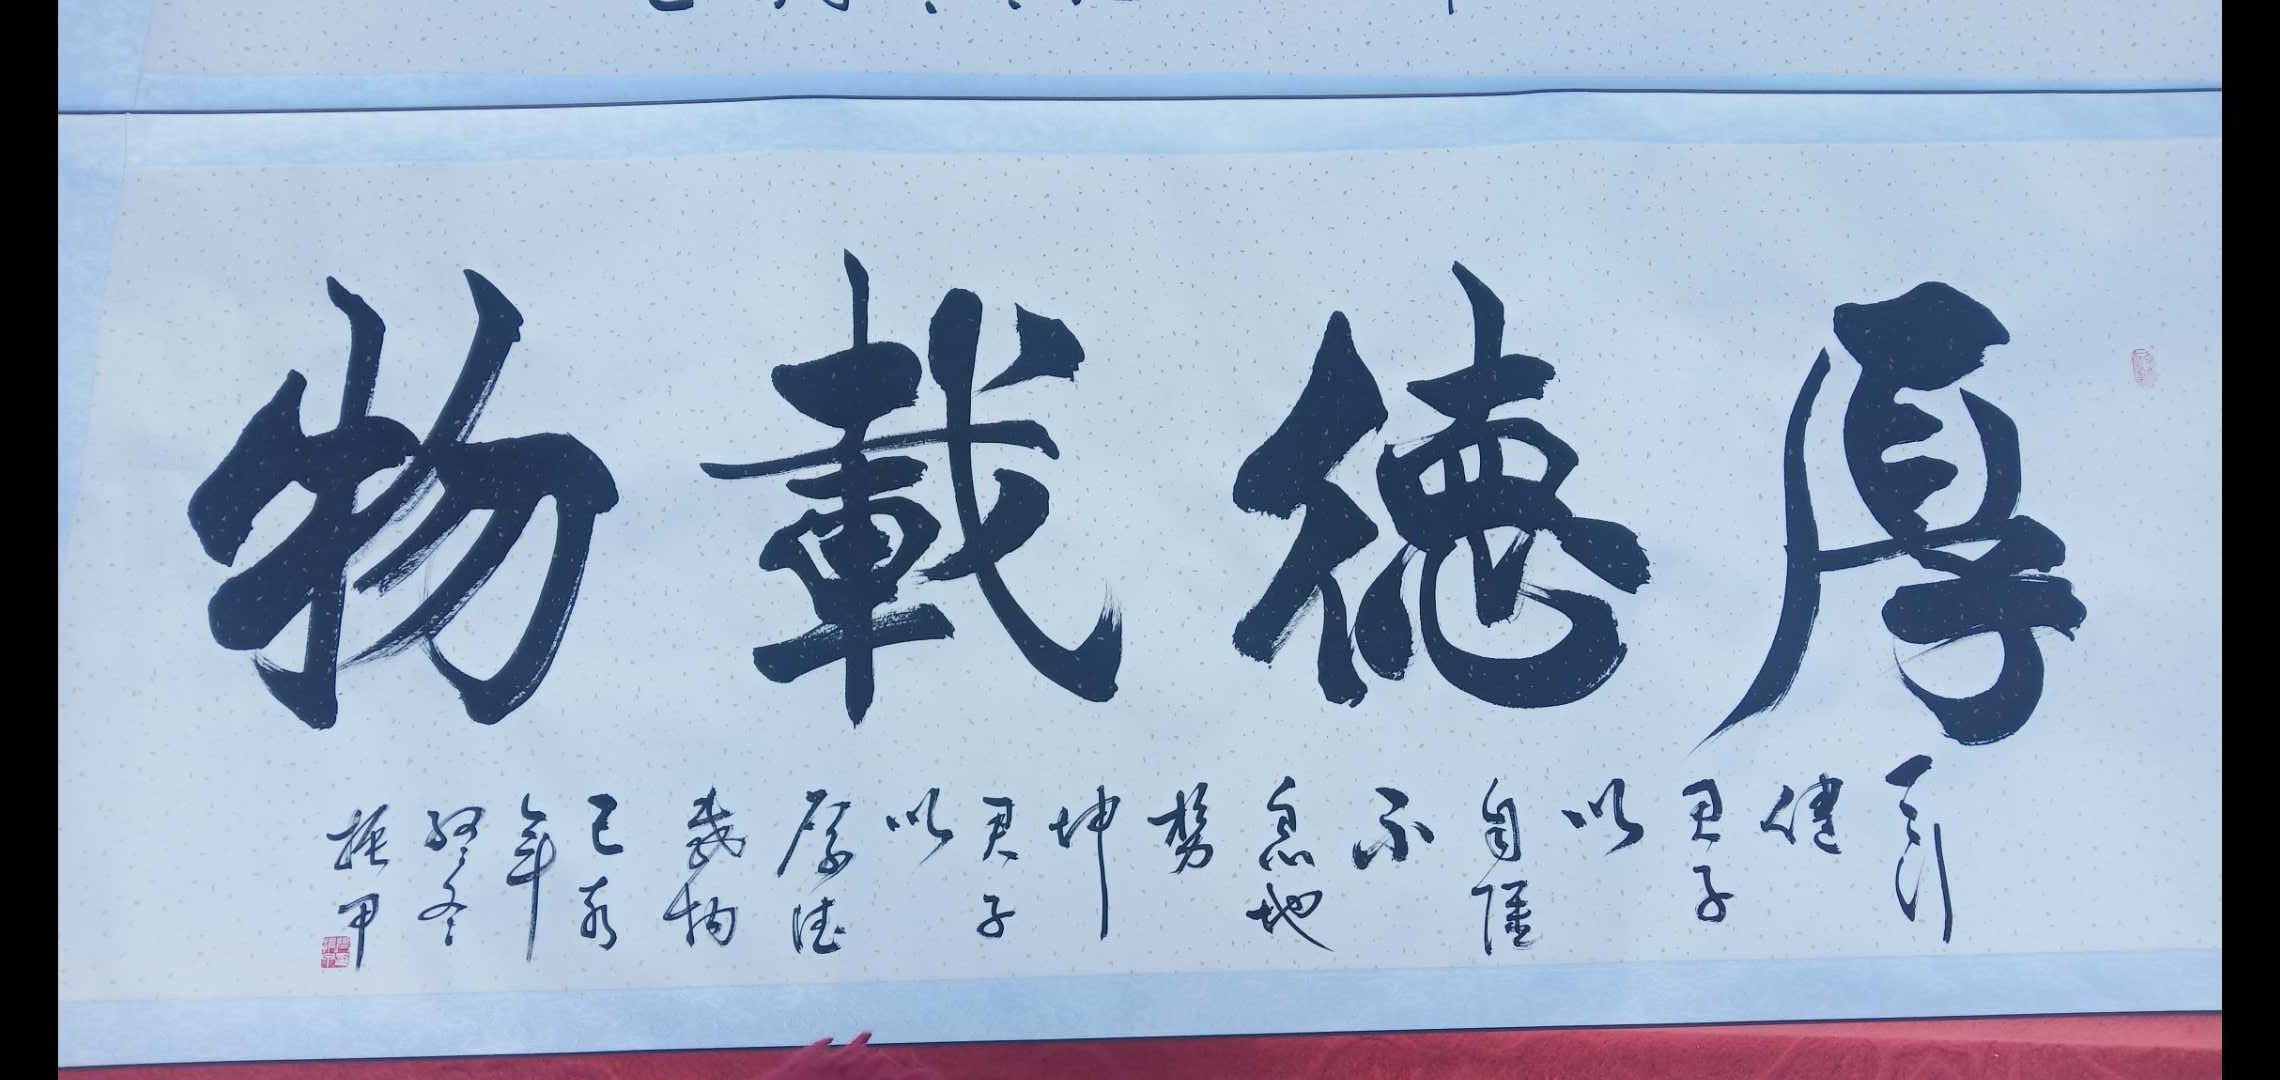 厚德載物
天行
健
君子
以
自強
不
息地
勢
坤
君子
以
厚德
載物
己亥
年
終冬
振甲